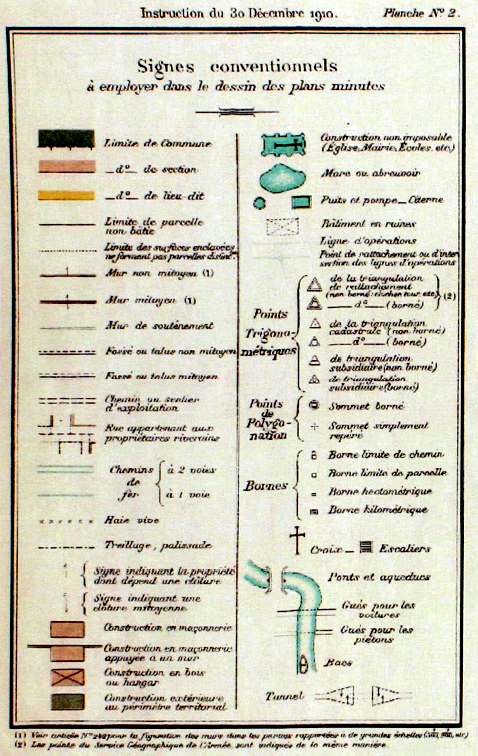 Instruction du 30 Décembre 1910.
Planche N° 2.
Signes conventionnels
à employer dans le dessin des plans minutes
Limite de Commune
_d°_ de section
_d°_ de lieu-dit
Limite de parcelle
non bâtie
Limite des surfaces enclavées
ne formant pas parcelles distinctes
Mur non mitoyen (1)
Mur mitoyen (1)
Mur de soutènement
Fossé ou talus non mitoyen
Fossé ou talus mitoyen
Chemin ou sentier
d'exploitation
Rue appartenant aux
propriétaires riverains
Chemins
de
fer
à 2 voies
à 1 voie
Haie vive
Treillage, palissade
Signe indiquant la propriété
dont dépend une clôture
Signe indiquant une
clôture mitoyenne
Construction en maçonnerie
Construction en maçonnerie
appuyée à un mur
Construction en bois
ou hangar
Construction extérieure
au périmètre territorial
Construction non imposable
(Église, Mairie, Écoles, etc)
Mare ou abreuvoir
Puits et pompe _ Citerne
Bâtiment en ruines
Ligne d'opérations
Point de rattachement ou d'inter
section des lignes d'opérations
Points
Trigono-
métriques
de la triangulation
de rattachement
(non borné: clocher, tour, etc)
_d°_ (borné)
(2)
de la triangulation
cadastrale (non borné)
_d°_ (borné)
de triangulation
subsidiaire (non borné)
de triangulation
subsidiaire (borné)
Points
de
Polygo-
nation
Sommet borné
Sommet simplement
repéré
Bornes
Borne limite de chemin
Borne limite de parcelle
Borne hectométrique
Borne kilométrique
Croix _ Escaliers
Ponts et aqueducs
Gués pour les
voitures
Gués pour les
piétons
Bacs
Tunnel
(1) Voir article N° 242 pour la figuration des murs dans les parties rapportées à de grandes échelles
(2) Les points du Service Géographique de l'Armée sont indiqués de la même manière.